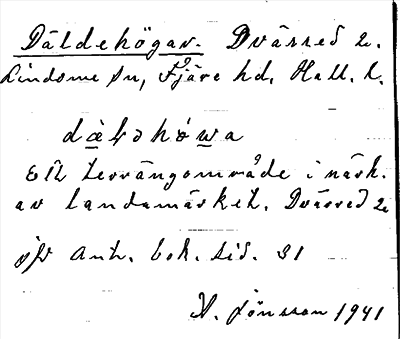 Däldehögar. Dvärred 2.
Lindome sn, Fjäre hd. Hall. l.
Ett terrängområde i närh.
av landamärket. Dvärred 2
jfr Ant. bok. sid. 31
H. Jönsson 1941